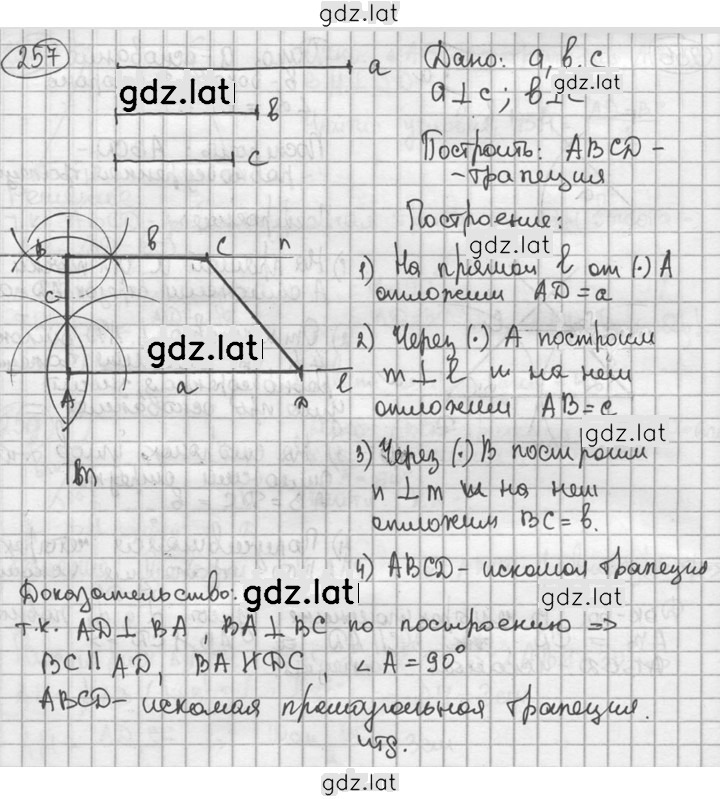 gdz.lat
257
a
gdz.lat
в
c
Дано: a, в. c
gdz.lat
a⊥c; в⊥c
Построить: ABCD -
- трапеция
Построение:
gdz.lat
1) На прямой l от (·) A
отложим AD = a
2) Через (·) A построим
m ⊥ l и на нём
отложим AB = c
gdz.lat
3) Через (·) B построим
n ⊥ m и на нем
отложим BC = в.
4) ABCD - искомая трапеция
B в C n
c
gdz.lat
A a D l
m
Доказательство:
gdz.lat
т.к. AD ⊥ BA, BA ⊥ BC по построению =>
BC || AD, BA ∦ DC, ∠A = 90°
ABCD - искомая прямоугольная трапеция.
чтд.
gdz.lat